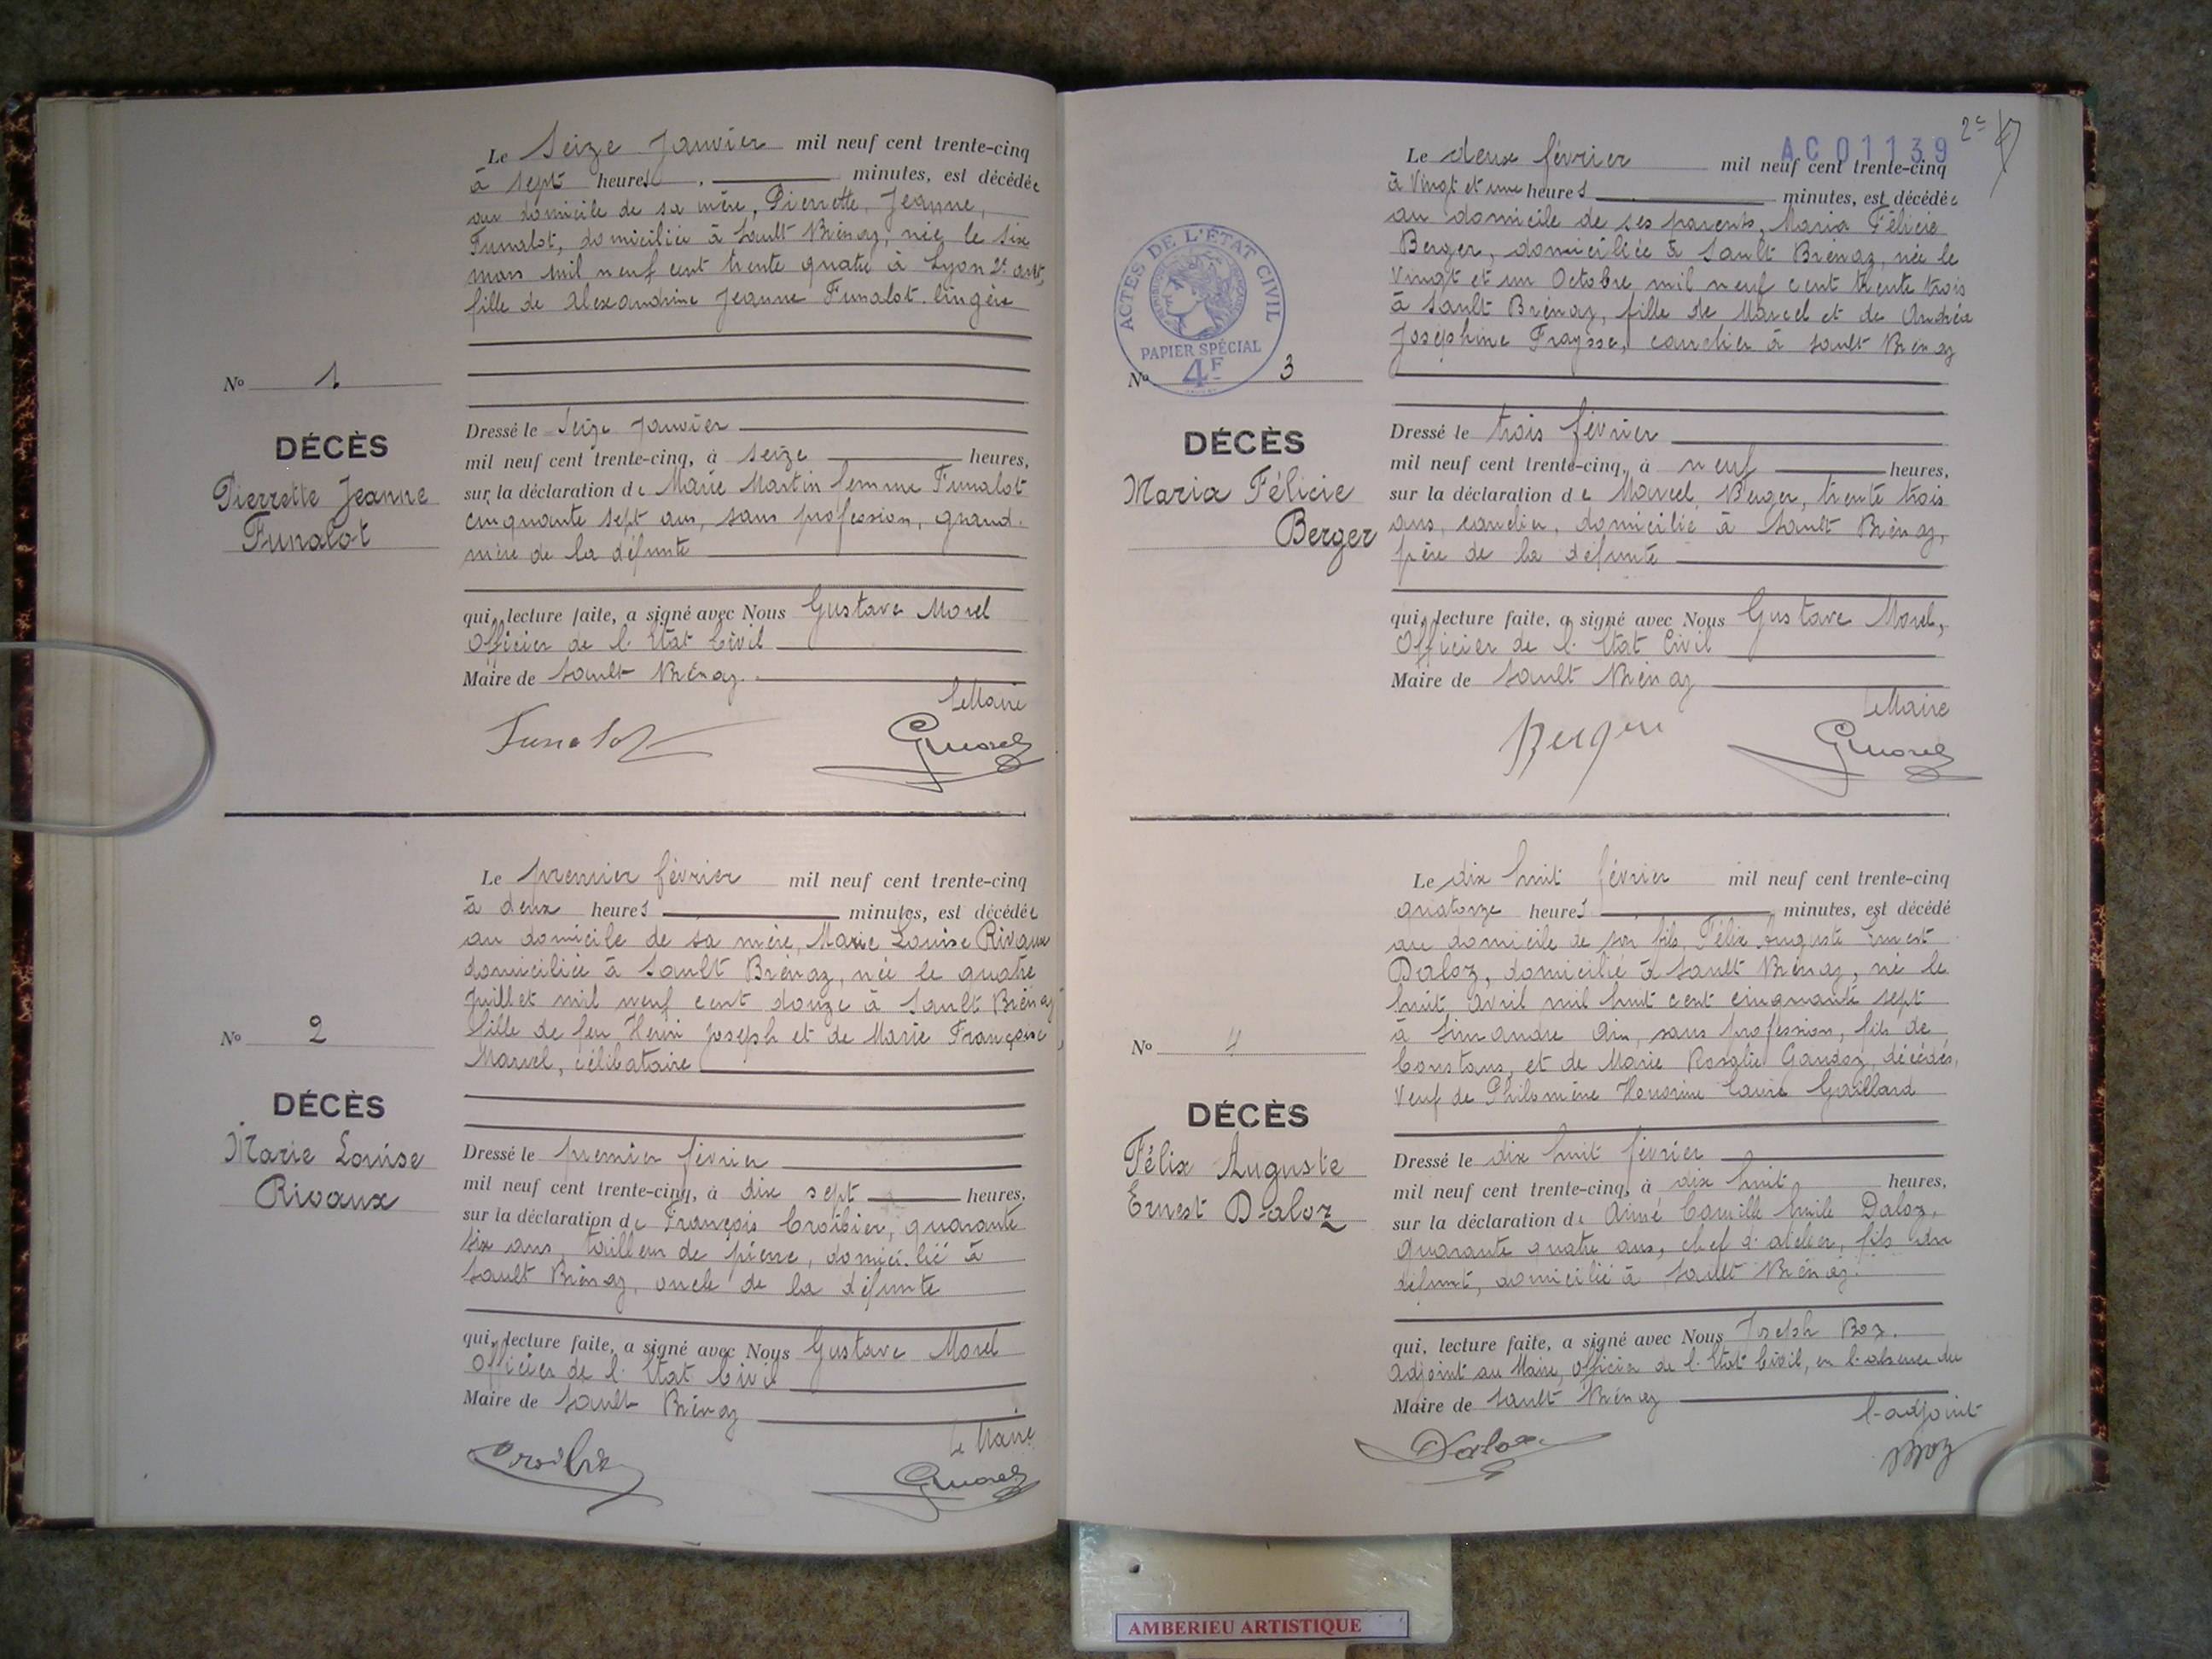 Le Seize Janvier mil neuf cent trente-cinq
à sept heures minutes, est décédée
au domicile de sa mère, Pierrette, Jeanne,
Funalot, domiciliée à Sault Brénaz, née le six
mars mil neuf cent trente quatre à Lyon 2e arrt,
fille de Alexandrine Jeanne Funalot lingère
No 1
DÉCÈS
Pierrette Jeanne
Funalot
Dressé le Seize Janvier
mil neuf cent trente-cinq, à seize heures,
sur la déclaration de Marie Martin femme Funalot
cinquante sept ans, sans profession, grand-
mère de la défunte
qui, lecture faite, a signé avec Nous Gustave Morel
Officier de l'Etat Civil
Maire de Sault Brénaz.
Le Maire
Funalot GMorel
Le premier février mil neuf cent trente-cinq
à deux heures minutes, est décédée
au domicile de sa mère, Marie Louise Rivaux
domiciliée à Sault Brénaz, née le quatre
Juillet mil neuf cent douze à Sault Brénaz
fille de feu Henri Joseph et de Marie Françoise
célibataire
No 2
DÉCÈS
Marie Louise
Rivaux
Dressé le premier février
mil neuf cent trente-cinq, à dix sept heures,
sur la déclaration de François Croibier, quarante
six ans, tailleur de pierre, domicilié à
Sault Brénaz, oncle de la défunte
qui, lecture faite, a signé avec Nous Gustave Morel
Officier de l'Etat Civil
Maire de Sault Brénaz
Le Maire
GMorel
AC01139 2e
Le deux février mil neuf cent trente-cinq
à Vingt et une heures minutes, est décédée
au domicile de ses parents, Maria Félicie
Berger, domiciliée à Sault Brénaz, née le
Vingt et un Octobre mil neuf cent trente trois
à Sault Brénaz, fille de Marcel et de Andréa
Joséphine Fraysse, carrier à Sault Brénaz
ACTES DE L'ÉTAT CIVIL
PAPIER SPÉCIAL
4F
No 3
DÉCÈS
Maria Félicie
Berger
Dressé le trois février
mil neuf cent trente-cinq, à neuf heures,
sur la déclaration de Marcel Berger, trente trois
ans, carrier, domicilié à Sault Brénaz,
père de la défunte
qui, lecture faite, a signé avec Nous Gustave Morel,
Officier de l'Etat Civil
Maire de Sault Brénaz
Le Maire
Berger GMorel
Le dix huit février mil neuf cent trente-cinq
quatorze heures minutes, est décédé
au domicile de son fils, Félix Auguste Ernest
Daloz, domicilié à Sault Brénaz, né le
huit avril mil huit cent cinquante sept
à Simandre Ain, sans profession, fils de
Constans, et de Marie Rosalie Gandoz, décédés,
Veuf de Philomène Honorine Laurie Guillard
No 4
DÉCÈS
Félix Auguste
Ernest Daloz
Dressé le dix huit février
mil neuf cent trente-cinq, à dix huit heures,
sur la déclaration de Aimé Camille Emile Daloz,
quarante quatre ans, chef d'atelier, fils du
défunt, domicilié à Sault Brénaz.
qui, lecture faite, a signé avec Nous Joseph Boz.
Adjoint au Maire, Officier de l'Etat Civil, en l'absence du
Maire de Sault Brénaz
l'adjoint
Daloz Boz
AMBERIEU ARTISTIQUE